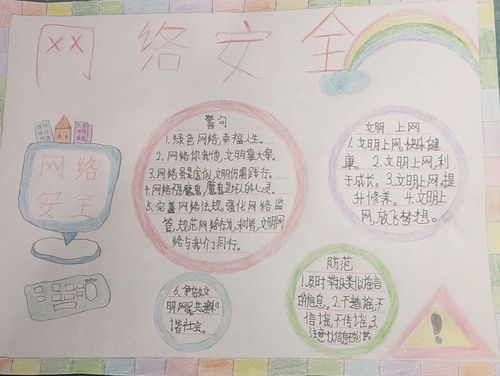 网络安全
网络
安全
警句
1.绿色网络,幸福人生。
2、网络你我他,文明靠大家。
3.网络虽是虚拟,文明仍需践行。
4.网络不是魔鬼,魔鬼是坏人的心灵。
5.完善网络法规,强化网络监
管,规范网络行为,和谐、文明网
络与我们同行。
文明 上网
1.文明上网,快乐健
康。 2.文明上网,利
于成长。3.文明上网,提
升修养。4.文明上
网,放飞梦想。
6、争做文
明网民,共建和
谐社会。
防范
1.及时举报类似谣言
的信息。2.不造谣,不
信谣,不传谣。3.
注意